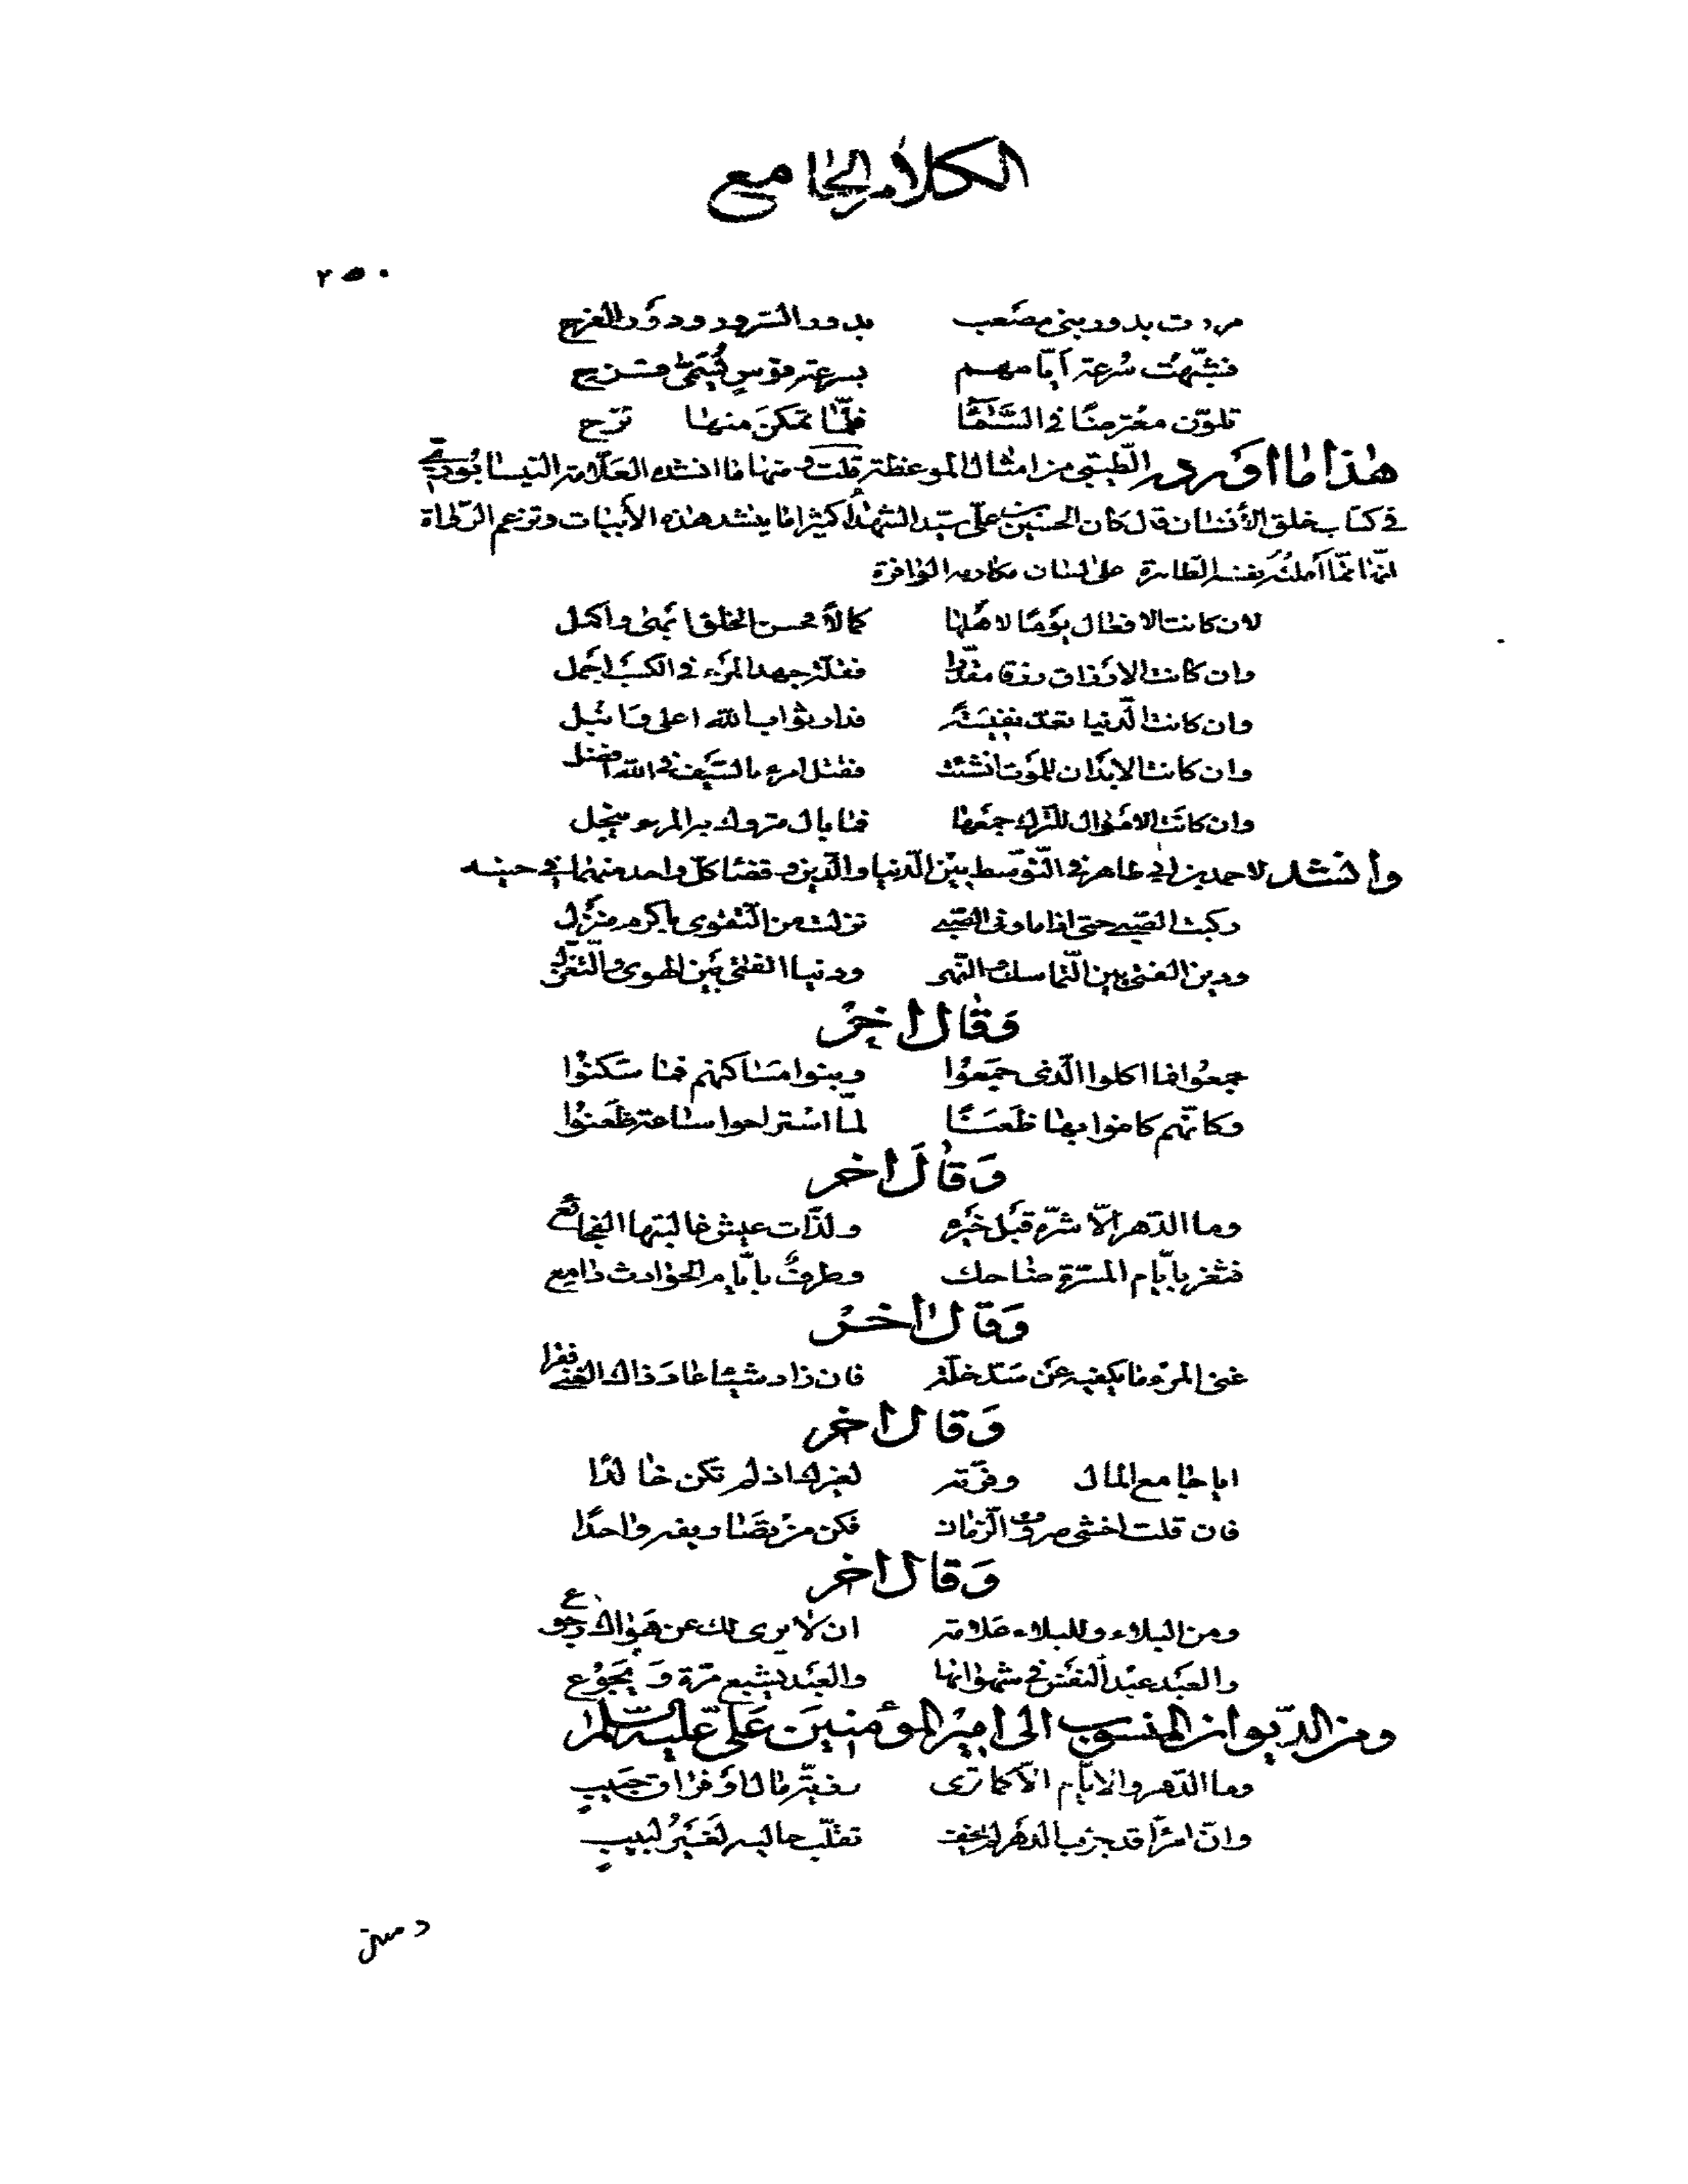 الكلام الجامع
٢٥٠
مررت بدور بني مصعب بدور السرور ودور الفرح
فشبّهت سُرعة أيّامهم بسرعة قوسٍ تُسَمّى قزح
تلوّن معترضًا في السَّمَا فلمّا تمكنَ منها نزح
هذا ما أورده الطيبي من امثال الموعظة قلت ومنها ما انشده العلّامة النيسابُوري
في كتاب خلق الأنسان قال كان الحسين بن علي سيد الشهداء كثيرا ما ينشد هذه الأبيات وتزعم الرواة
انها مما أملته نفسه الطاهرة على لسان مكارمه الوافرة
لان كانت الافعال يومًا لاهلها كمالاً فحسن الخلق ابهى واكمل
وان كانت الارزاق رزقا مقدّرا فقلة جهد المرء في الكسب اجمل
وان كانت الدّنيا تعدّ نفيسة فدار ثواب الله اعلى وانبل
وان كانت الابدان للموت انشئت فقتل امرء بالسيف في الله افضل
وان كانت الاموال للترك جمعها فما بال متروك به المرء يبخل
وأنشد لاحمد بن ابي طاهر في التّوسّط بين الدّنيا والدّين وقضا كلّ واحد منهما في حينه
ركبت الصبى حتى اذا ما ونى الصبى نزلت من التقوى باكرم منزل
ودين الفتى بين التماسك والنهى ودنيا الفتى بين الهوى والتغزّل
وَقال اخرُ
جمعُوا فما اكلوا الّذى جمَعُوا وبنوا مسَاكنهم فما سَكنُوا
وكانّهم كانوا بها ظَعنًا لمّا استراحوا ساعة ظَعنُوا
وَقالَ اخر
وما الدّهر الّا شرّه قبْل خيْره ولذّات عيش غالبتها الفجائع
فثغر بايّام المسرّة ضاحك وطرفٌ بايّام الحوادث دامع
وَقال اخرُ
غنى المرء ما يكفيه عن سَدّ خلّة فان زاد شيئا عادَ ذاك الغنى فقرا
وَقال اخر
ايا جامع المال وفرّته لغيرك اذ لم تكن خالدًا
فان قلت اخشى صروف الزمان فكن من تصاريفه واحدًا
وَقال اخر
ومن البلاء وللبلاء علامة ان لا يرى لك عن هَواك رجوع
والعبْد عبْد النفس في شهواتها والعبْد يشبع مرّة وَيجوُع
ومن الديوان المنسوب الى امير المؤمنين علي عليه السلام
وما الدّهر والايّام الّا كما ترى رزيّة مال او فراق حبيبٍ
وانّ امرأً قد جرّب الدهر لم يخف تقلّب حاليه لغَيرُ لبيبٍ